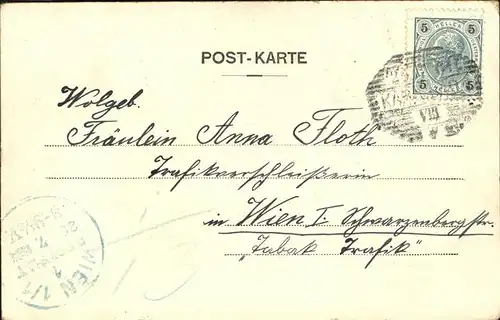 5 HELLER 5
5 5
POST-KARTE
VIII
Wolgeb.
Fräulein Anna Floth
Trafikverschleißerin
in Wien I. Schwarzenbergstr.
"Tabak Trafik"
WIEN 1/1